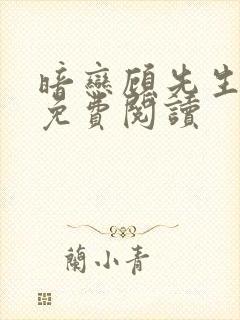 暗戀顧先生
免費閱讀
蘭小青